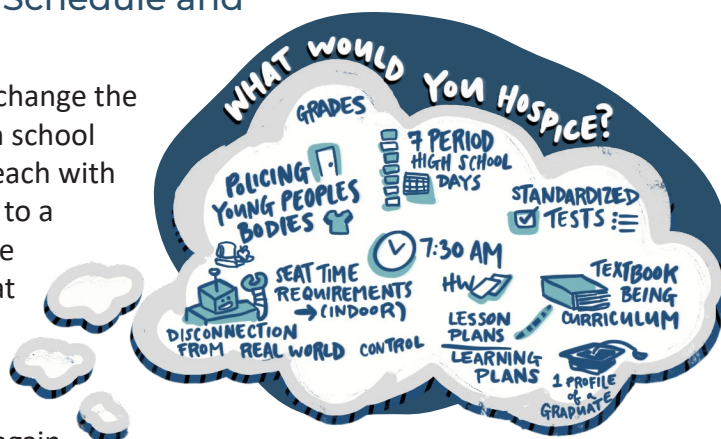 Schedule and
change the
school
each with
to a
at
again
WHAT WOULD YOU HOSPICE?
GRADES
POLICING
YOUNG PEOPLES
BODIES
7 PERIOD
HIGH SCHOOL
DAYS
STANDARDIZED
TESTS
7:30 AM
SEAT TIME
REQUIREMENTS
→ (INDOOR)
HW
TEXTBOOK
BEING
CURRICULUM
DISCONNECTION
FROM REAL WORLD
CONTROL
LESSON
PLANS
LEARNING
PLANS
1 PROFILE
of a
GRADUATE